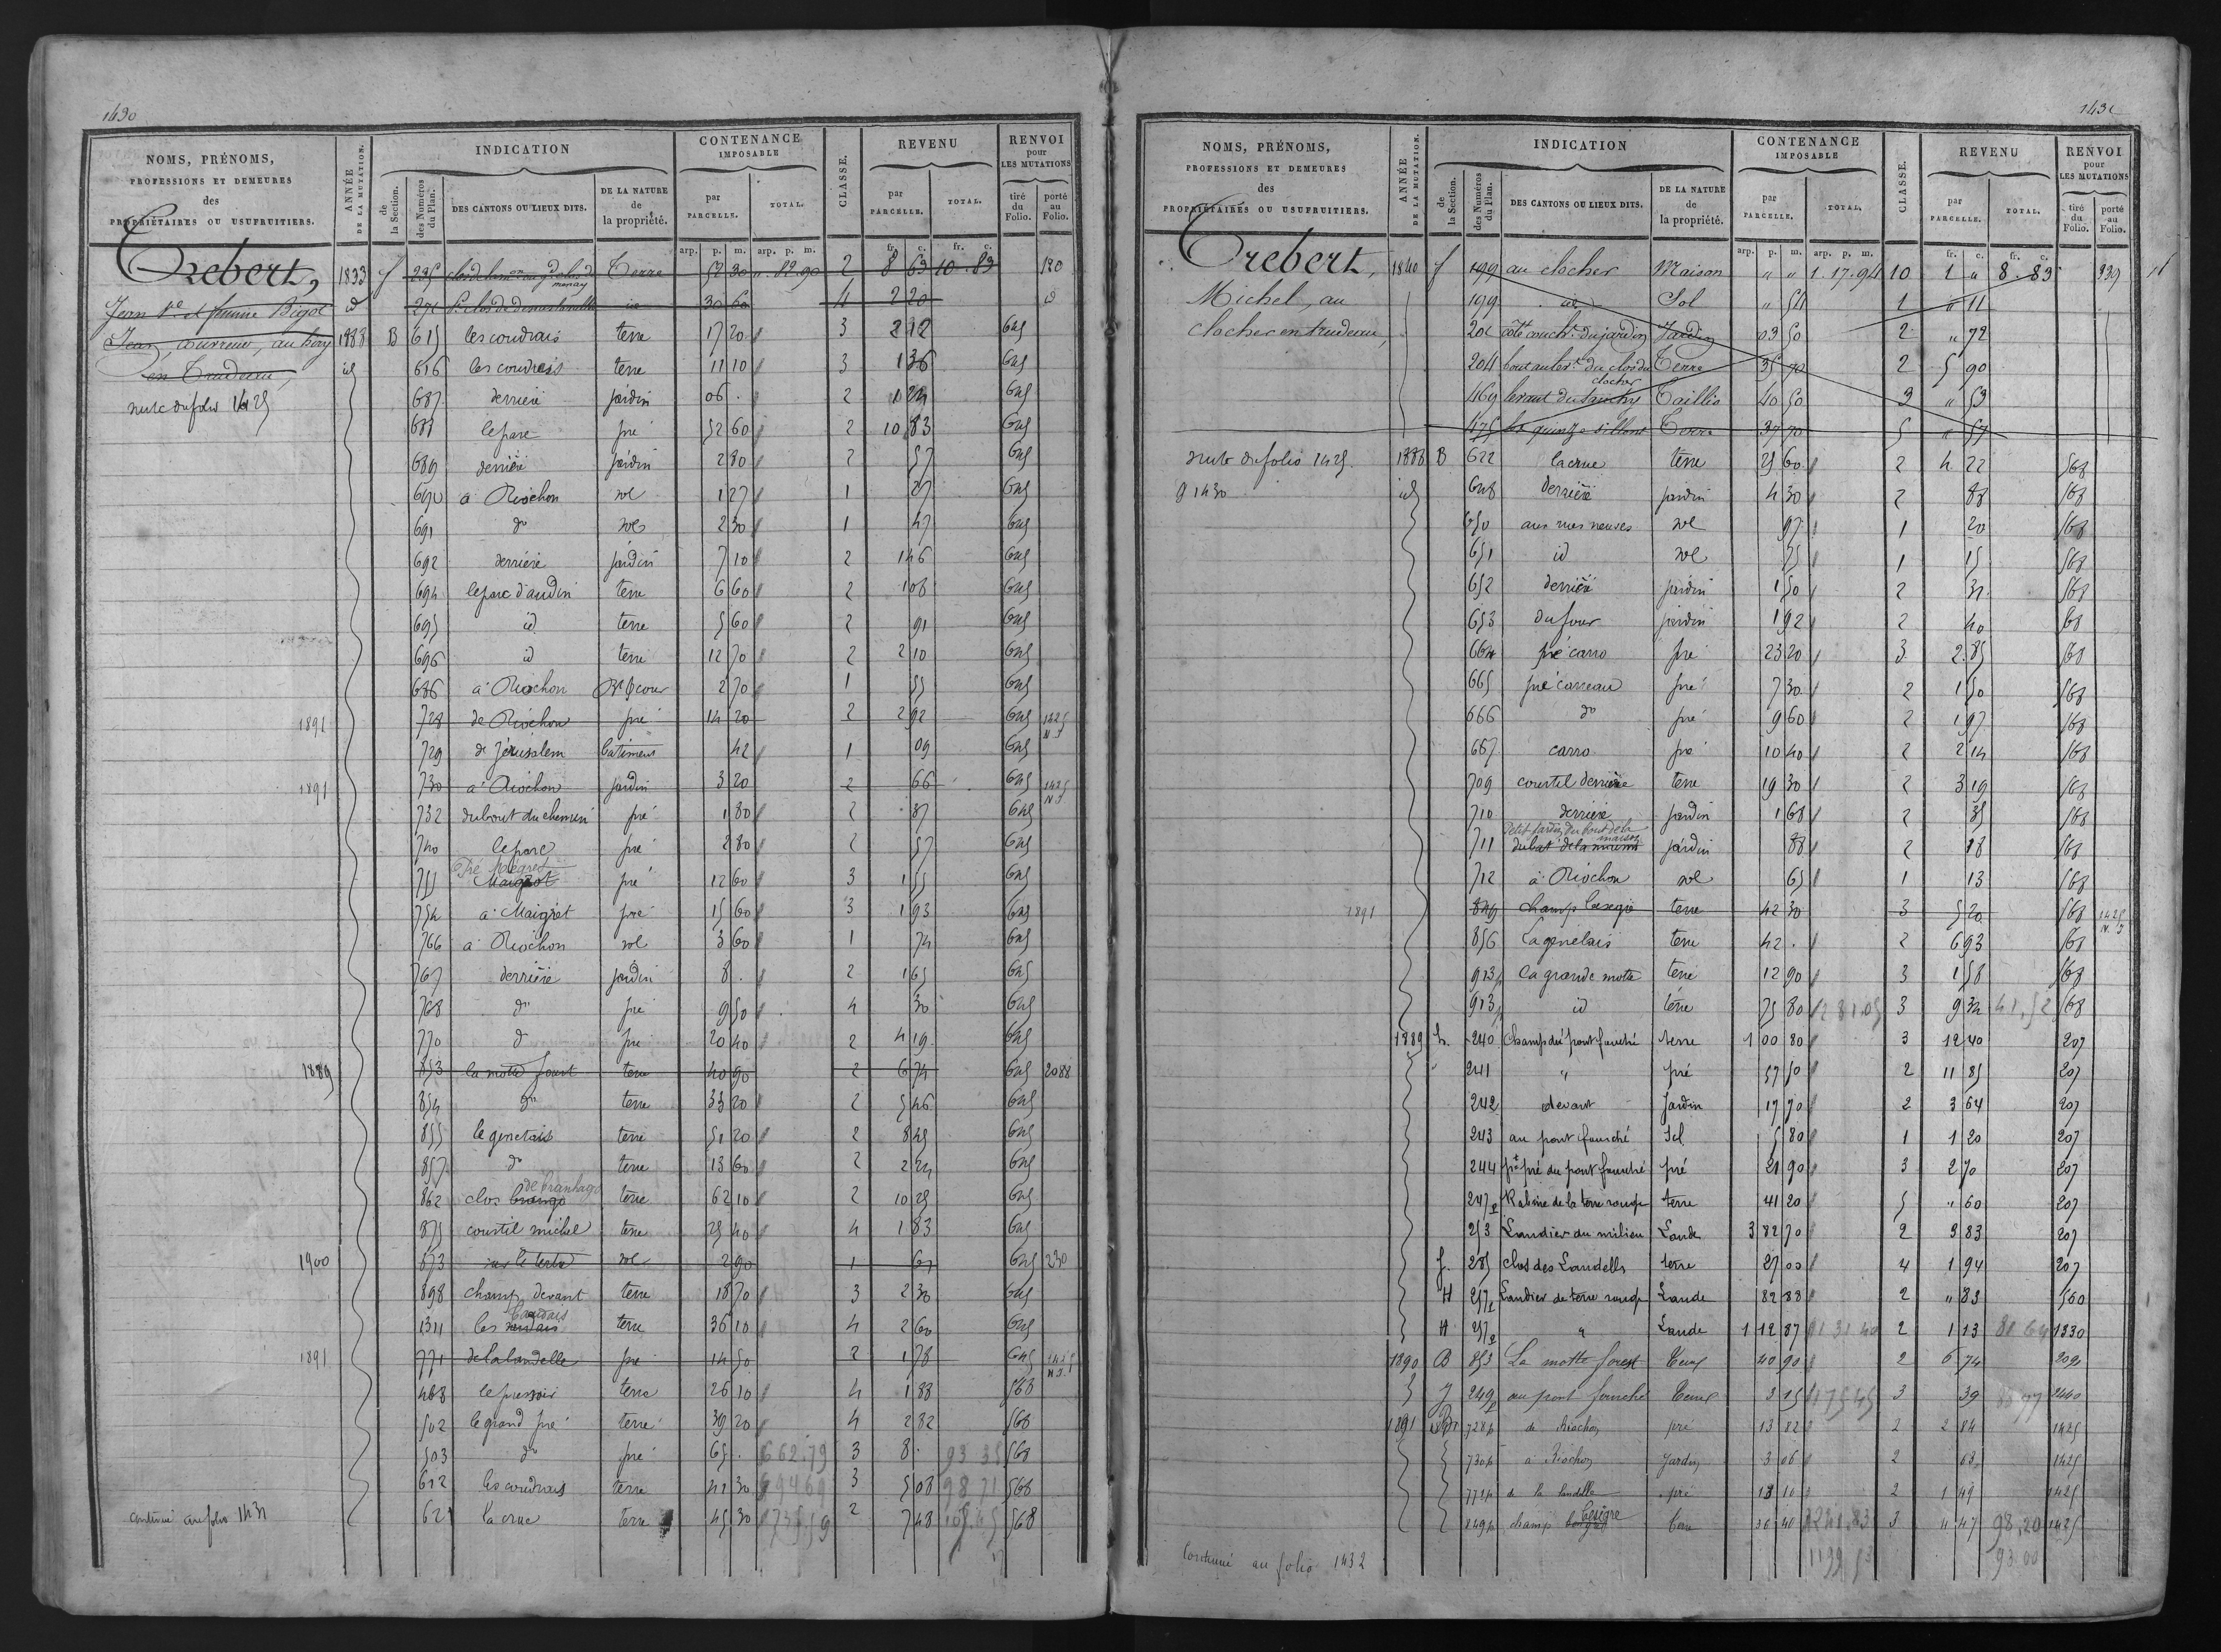 1430
NOMS, PRÉNOMS, PROFESSIONS ET DEMEURES des PROPRIÉTAIRES OU USUFRUITIERS.
ANNÉE DE LA MUTATION.
INDICATION
de la Section.
des Numéros du Plan.
DES CANTONS OU LIEUX DITS.
DE LA NATURE de la propriété.
CONTENANCE IMPOSABLE
par PARCELLE.
TOTAL.
CLASSE.
REVENU
par PARCELLE.
TOTAL.
RENVOI pour LES MUTATIONS
tiré du Folio.
porté au Folio.
arp. p. m. arp. p. m. fr. c. fr. c.
Trebert,
Jean
Jean, couvreur, au
en Trudeau,
suite du folio 1425
1833 f 235 Terre 52 30 " 82 90 2 8 63 10 83 120
id 271 id 30 60 4 2 20 id
1888 B 615 les coudrais terre 17 20 3 2 12 645
id 616 les coudrais terre 11 10 3 1 36 645
687 derrière jardin 06 . 2 1 24 645
688 le parc pré 52 60 2 10 83 645
689 derrière jardin 2 80 2 57 645
690 à Riochon sol 1 27 1 27 645
691 do sol 2 30 1 47 645
692 derrière jardin 7 10 2 1 46 645
694 le parc d'audin terre 6 60 2 1 08 645
695 id terre 5 60 2 91 645
696 id terre 12 70 2 2 10 645
686 à Riochon Bt & cour 2 70 1 55 645
1891 728 de Riochon pré 14 20 2 2 92 645 1425 N.I
729 de Jérusalem batiment 42 1 09 645
1891 730 à Riochon jardin 3 20 2 66 645 1425 N.I
732 du bout du chemin pré 1 80 2 37 645
740 le parc pré 2 80 2 57 645
Pré Maigret
755 Maigrot pré 12 60 3 1 55 645
754 à Maigret pré 15 60 3 1 93 645
766 à Riochon sol 3 60 1 74 645
767 derrière jardin 8 . 2 1 65 645
768 do pré 9 50 4 30 645
770 do pré 20 40 2 4 19 645
1889 853 la motte forest terre 40 90 2 6 74 645 2088
854 do terre 33 20 2 5 46 645
855 le genetais terre 51 20 2 8 45 645
857 do terre 13 60 2 2 24 645
de branhago
862 clos terre 62 10 2 10 25 645
875 courtil michel terre 25 40 4 1 83 645
1900 873 sur le tertre sol 2 90 1 60 645 230
898 champ devant terre 18 70 3 2 30 645
1311 les terre 36 10 4 2 60 645
1891 771 de la landelle pré 14 50 2 1 78 645 1425 N.I
488 le pressoir terre 26 10 4 1 88 568
502 le grand pré terre 39 20 4 2 82 568
503 do pré 65 . 662.79 3 8 . 93 35 568
612 les coudrais terre 41 30 694 69 3 5 08 98 71 568
621 la crue terre 45 30 2 7 48 568
continué au folio 1431
1431
NOMS, PRÉNOMS, PROFESSIONS ET DEMEURES des PROPRIÉTAIRES OU USUFRUITIERS.
ANNÉE DE LA MUTATION.
INDICATION
de la Section.
des Numéros du Plan.
DES CANTONS OU LIEUX DITS.
DE LA NATURE de la propriété.
CONTENANCE IMPOSABLE
par PARCELLE.
TOTAL.
CLASSE.
REVENU
par PARCELLE.
TOTAL.
RENVOI pour LES MUTATIONS
tiré du Folio.
porté au Folio.
arp. p. m. arp. p. m. fr. c. fr. c.
Trebert,
Michel, au
clocher en trudeau,
suite du folio 1425
& 1430
1840 f 199 au clocher Maison " " 1.17.94 10 1 " 8.83 239
199 id Sol " 54 1 " 11
201 côté coucht du jardin Jardin 03 50 2 " 72
204 bout au levt du clos du clocher Terre 35 70 2 5 90
469 Taillis 40 50 3 " 53
475 les quinze sillons Terre 37 70 5 " 57
1888 B 622 la crue terre 25 60 2 4 22 568
id 648 derrière jardin 4 30 2 88 568
650 aux rues neuves sol 97 1 20 568
651 id sol 75 1 15 568
652 derrière jardin 1 50 2 31 568
653 du four jardin 1 92 2 40 568
664 pré carro pré 23 20 3 2 85 568
665 pré carreau pré 7 30 2 1 50 568
666 do pré 9 60 2 1 97 568
667 carro pré 10 40 2 2 14 568
709 courtil derrière terre 19 30 2 3 19 568
710 derrière jardin 1 68 2 35 568
Petit jardin du bout de la maison
711 jardin 88 2 18 568
712 à Riochon sol 65 1 13 568
1891 849 champ terre 42 30 3 5 20 568 1425 N.I
856 la genetais terre 42 . 2 6 93 568
913p la grande motte terre 12 90 3 1 58 568
913p id terre 75 80 281.05 3 9 32 41,52 568
1889 h. 240 Champ du pont fauché terre 1 00 80 3 12 40 207
241 " pré 57 50 2 11 85 207
242 devant Jardin 17 70 2 3 64 207
243 au pont fauché Sol 5 80 1 1 20 207
244 pt pré du pont fauché pré 21 90 3 2 70 207
247p Rabine de la terre rouge terre 41 20 5 " 60 207
253 Landier du milieu Lande 3 82 70 2 3 83 207
f. 285 clos des Landells terre 27 00 4 1 94 207
H 257p Landier de terre rouge Lande 82 88 2 " 83 560
H 257p " Lande 1 12 87 2 1 13 81 64 1330
1890 B 853 La motte forest Terre 40 90 2 6 74 2090
249p au pont fouché Terre 3 15 3 39 2460
1891 728p de Riochon pré 13 82 2 2 84 1425
730p à Riochon Jardin 3 06 2 63 1425
771p de la landelle pré 13 10 2 1 49 1425
849p champ terre 36 40 3 4 47 98,20 1425
1199 53 93 00
Continué au folio 1432